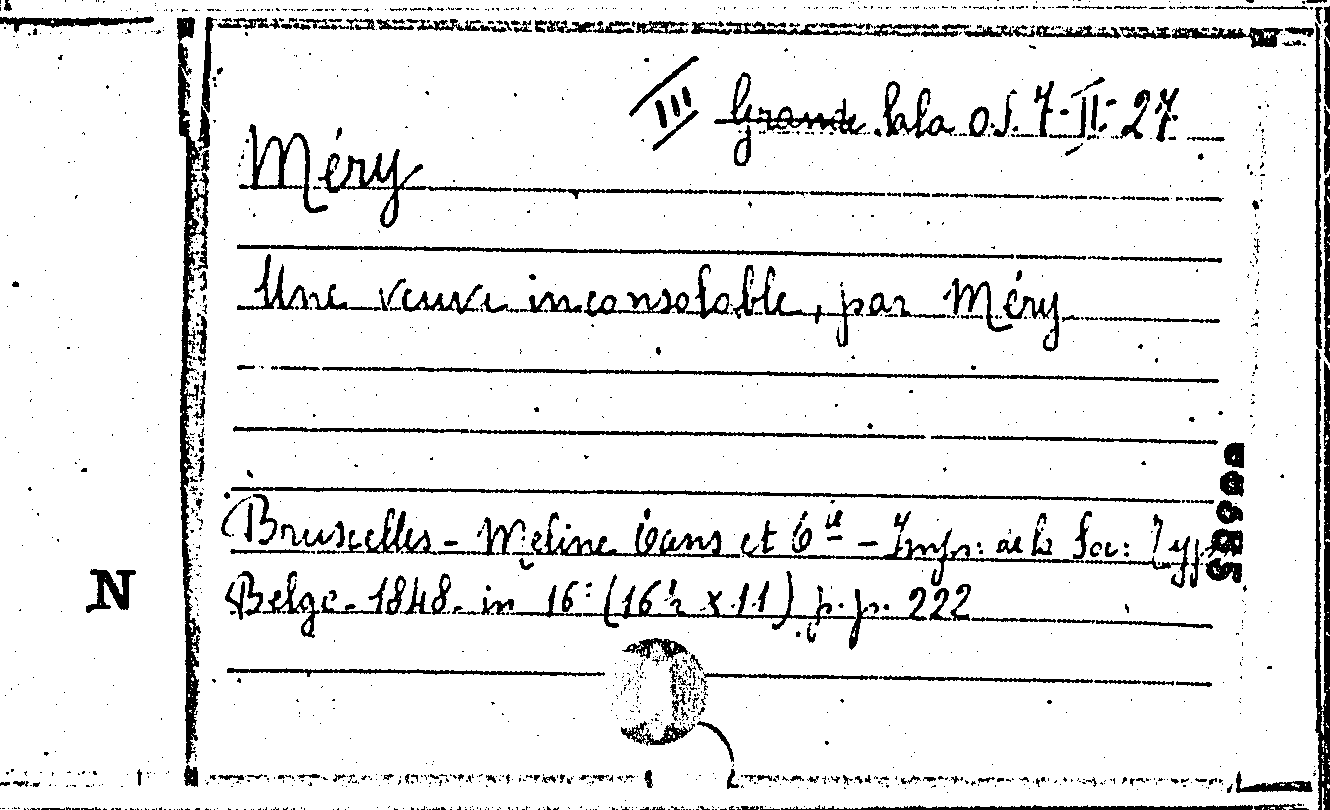 III Grande Sala O.S. 7-II-27
Méry
Une veuve inconsolable, par Méry
Bruxelles - Meline Cans et Cie - Imp: de la Soc: Typ
Belge - 1848 - in 16: (16½ x 11) p.p. 222
N